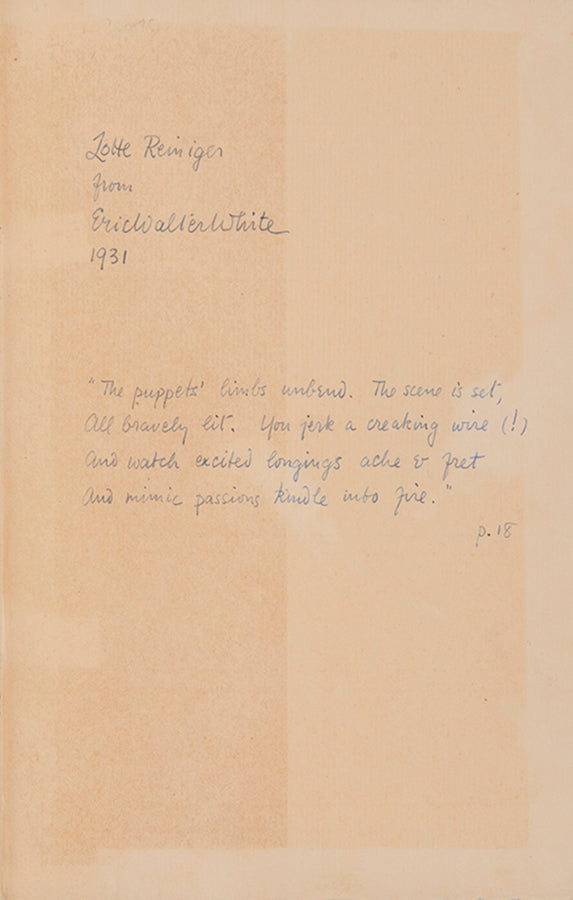 Lotte Reiniger
from
Eric Walter White
1931
"The puppets' limbs unbend. The scene is set,
All bravely lit. You jerk a creaking wire (!)
And watch excited longings ache & fret
And mimic passions kindle into fire."
p. 18